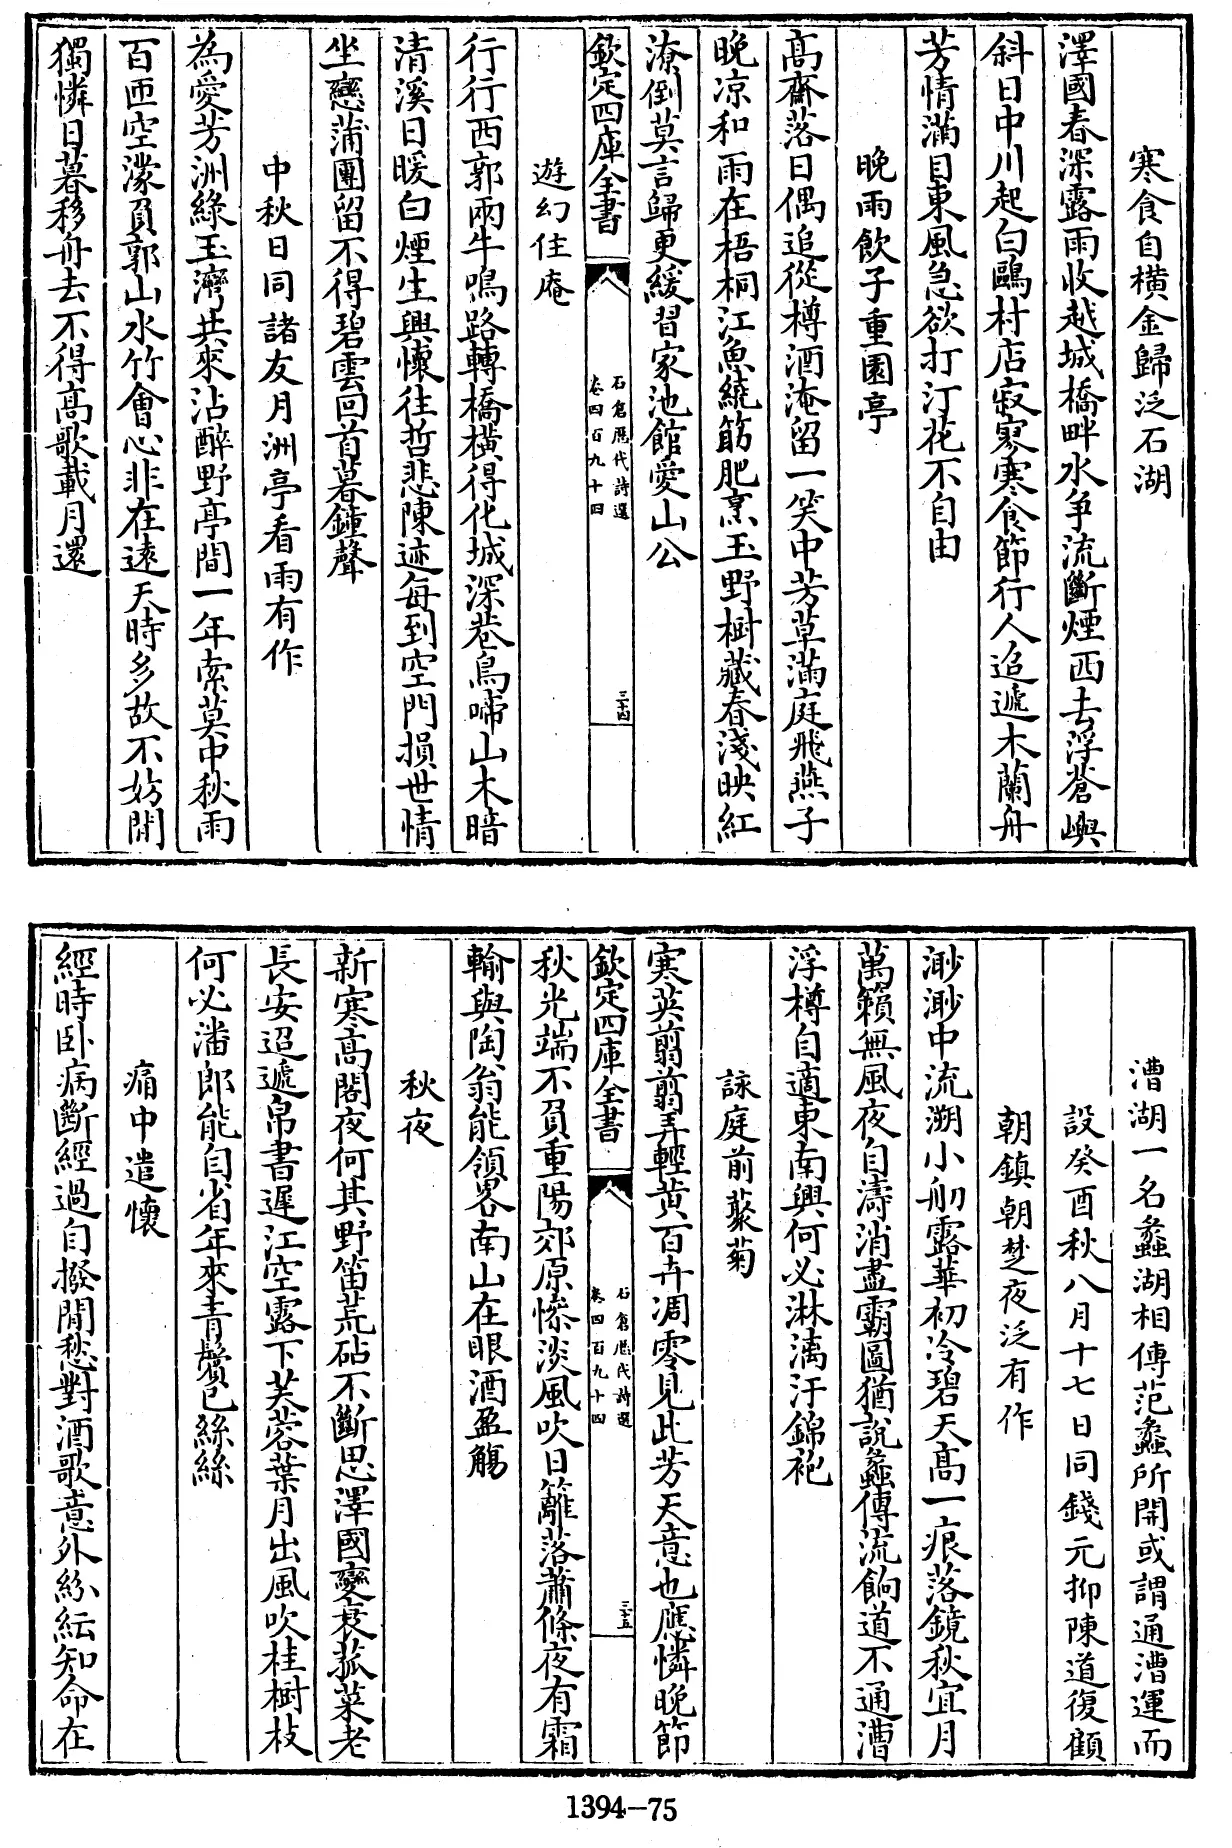 寒食自橫金歸泛石湖
澤國春深露雨收越城橋畔水爭流斷煙西去浮蒼嶼
斜日中川起白鷗村店寂寥寒食節行人迢遞木蘭舟
芳情滿目東風急欲打汀花不自由
晚雨飲子重園亭
高齋落日偶追從樽酒淹留一笑中芳草滿庭飛燕子
晚凉和雨在梧桐江魚繞筯肥烹玉野樹藏春淺映紅
潦倒莫言歸更緩習家池館愛山公
欽定四庫全書
石倉歷代詩選
卷四百九十四
三十四
遊幻住庵
行行西郭兩牛鳴路轉橋橫得化城深巷鳥啼山木暗
清溪日暖白煙生興懷往哲悲陳迹每到空門損世情
坐戀蒲團留不得碧雲回首暮鐘聲
中秋日同諸友月洲亭看雨有作
為愛芳洲綠玉灣共來沾醉野亭間一年索莫中秋雨
百匝空濛負郭山水竹會心非在遠天時多故不妨閒
獨憐日暮移舟去不得高歌載月還
漕湖一名蠡湖相傳范蠡所開或謂通漕運而
設癸酉秋八月十七日同錢元抑陳道復顧
朝鎮朝楚夜泛有作
渺渺中流溯小舠露華初冷碧天高一痕落鏡秋宜月
萬籟無風夜自濤消盡霸圖猶說蠡傳流餉道不通漕
浮樽自適東南興何必淋漓汙錦袍
詠庭前藂菊
寒英翦翦弄輕黄百卉凋零見此芳天意也應憐晚節
欽定四庫全書
石倉歷代詩選
卷四百九十四
三十五
秋光端不負重陽郊原慘淡風吹日籬落蕭條夜有霜
輸與陶翁能領畧南山在眼酒盈觴
秋夜
新寒高閣夜何其野笛荒砧不斷思澤國變衰菰菜老
長安迢遞帛書遲江空露下芙蓉葉月出風吹桂樹枝
何必潘郎能自省年來青鬢已絲絲
病中遣懷
經時卧病斷經過自撥閒愁對酒歌意外紛紜知命在
1394-75